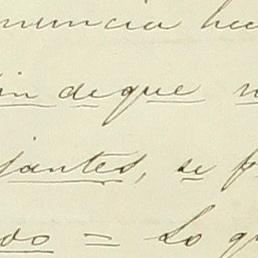 nuncia hec
in de que n
jantes, se p
do = Lo q